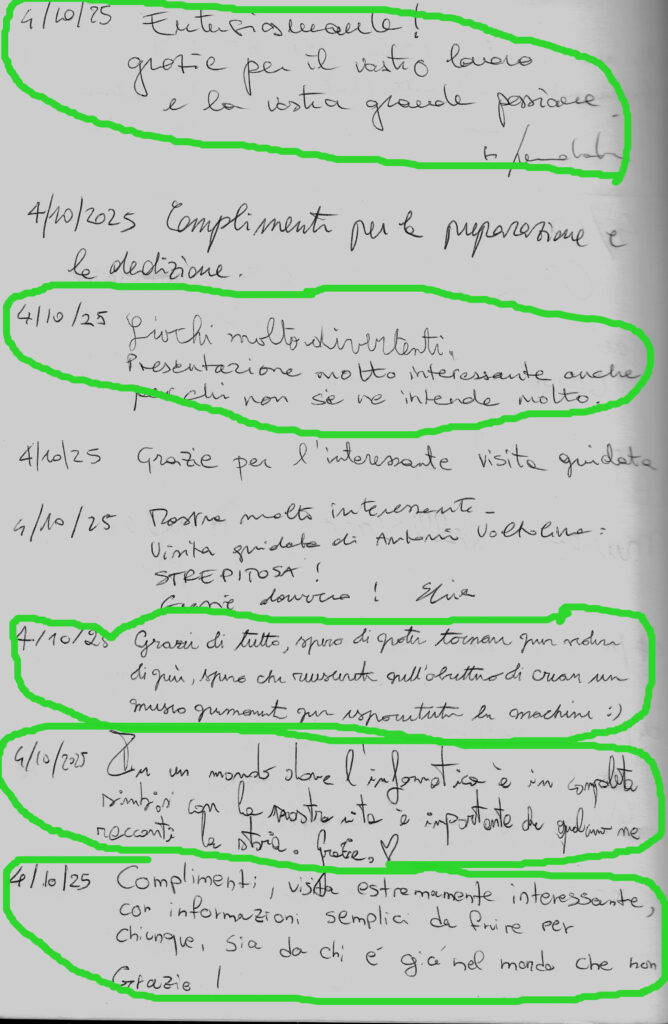 4/10/25 Entusiasmante!
grazie per il vostro lavoro
e la vostra grande passione.
4/10/2025 Complimenti per la preparazione e
la dedizione.
4/10/25 Giochi molto divertenti.
Presentazione molto interessante anche
per chi non se ne intende molto.
4/10/25 Grazie per l'interessante visita guidata
4/10/25 Mostra molto interessante -
Visita guidata di Antonio Voltolina:
STREPITOSA!
Grazie davvero!
4/10/25 Grazie di tutto, spero di poter tornare per vedere
di più, spero che riuscirete nell'obiettivo di creare un
museo permanente per esporre tutte le macchine :)
4/10/2025 In un mondo dove l'informatica è in completa
simbiosi con la nostra vita è importante che qualcuno ne
racconti la storia. Grazie. ♡
4/10/25 Complimenti, visita estremamente interessante,
con informazioni semplici da fruire per
chiunque, sia da chi é giá nel mondo che non
Grazie!